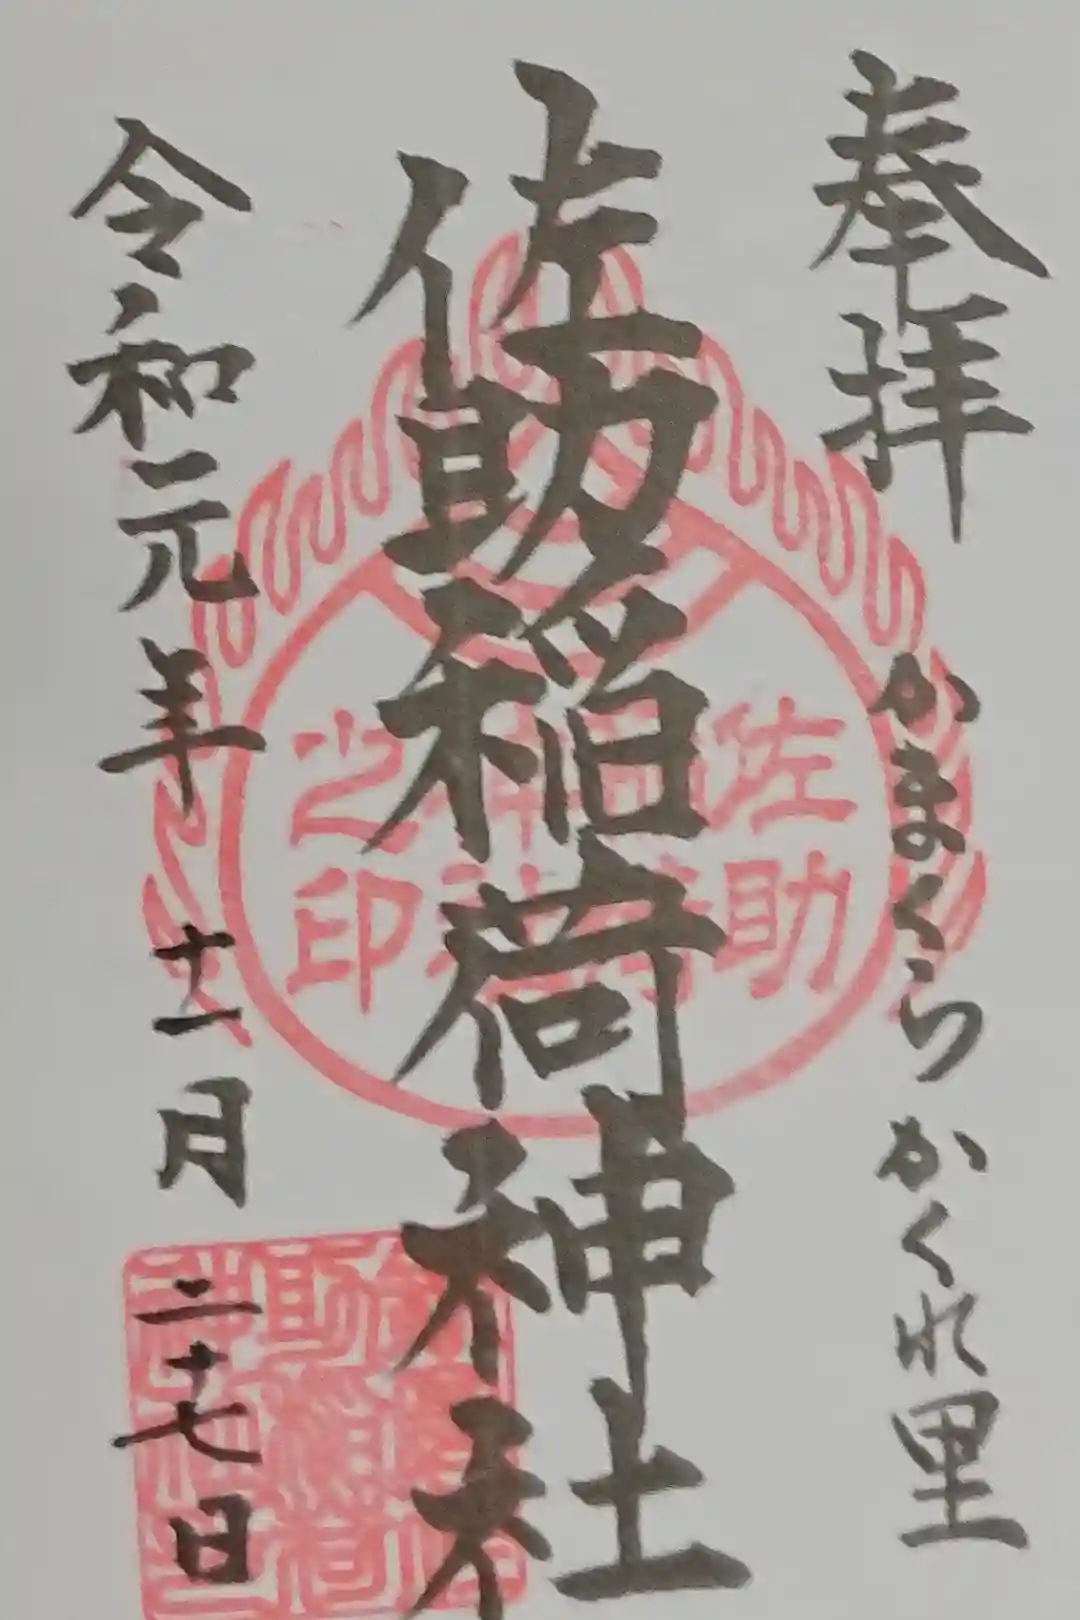 奉拝
かまくらかくれ里
佐助稲荷神社
令和元年十一月二十七日
佐助
稲荷
神社
之印